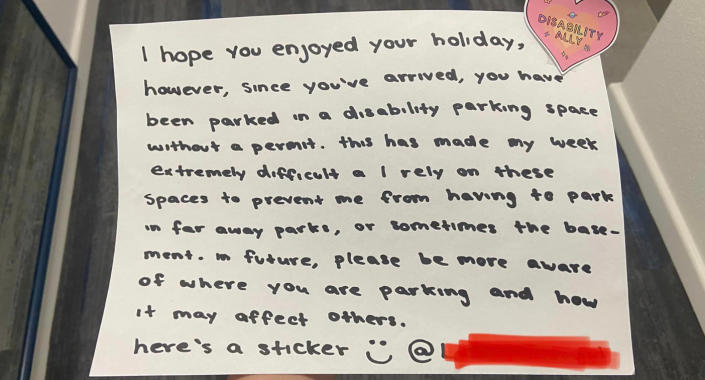 DISABILITY
ALLY
I hope you enjoyed your holiday,
however, since you've arrived, you have
been parked in a disability parking space
without a permit. this has made my week
extremely difficult a I rely on these
spaces to prevent me from having to park
in far away parks, or sometimes the base-
ment. in future, please be more aware
of where you are parking and how
it may affect others.
here's a sticker @